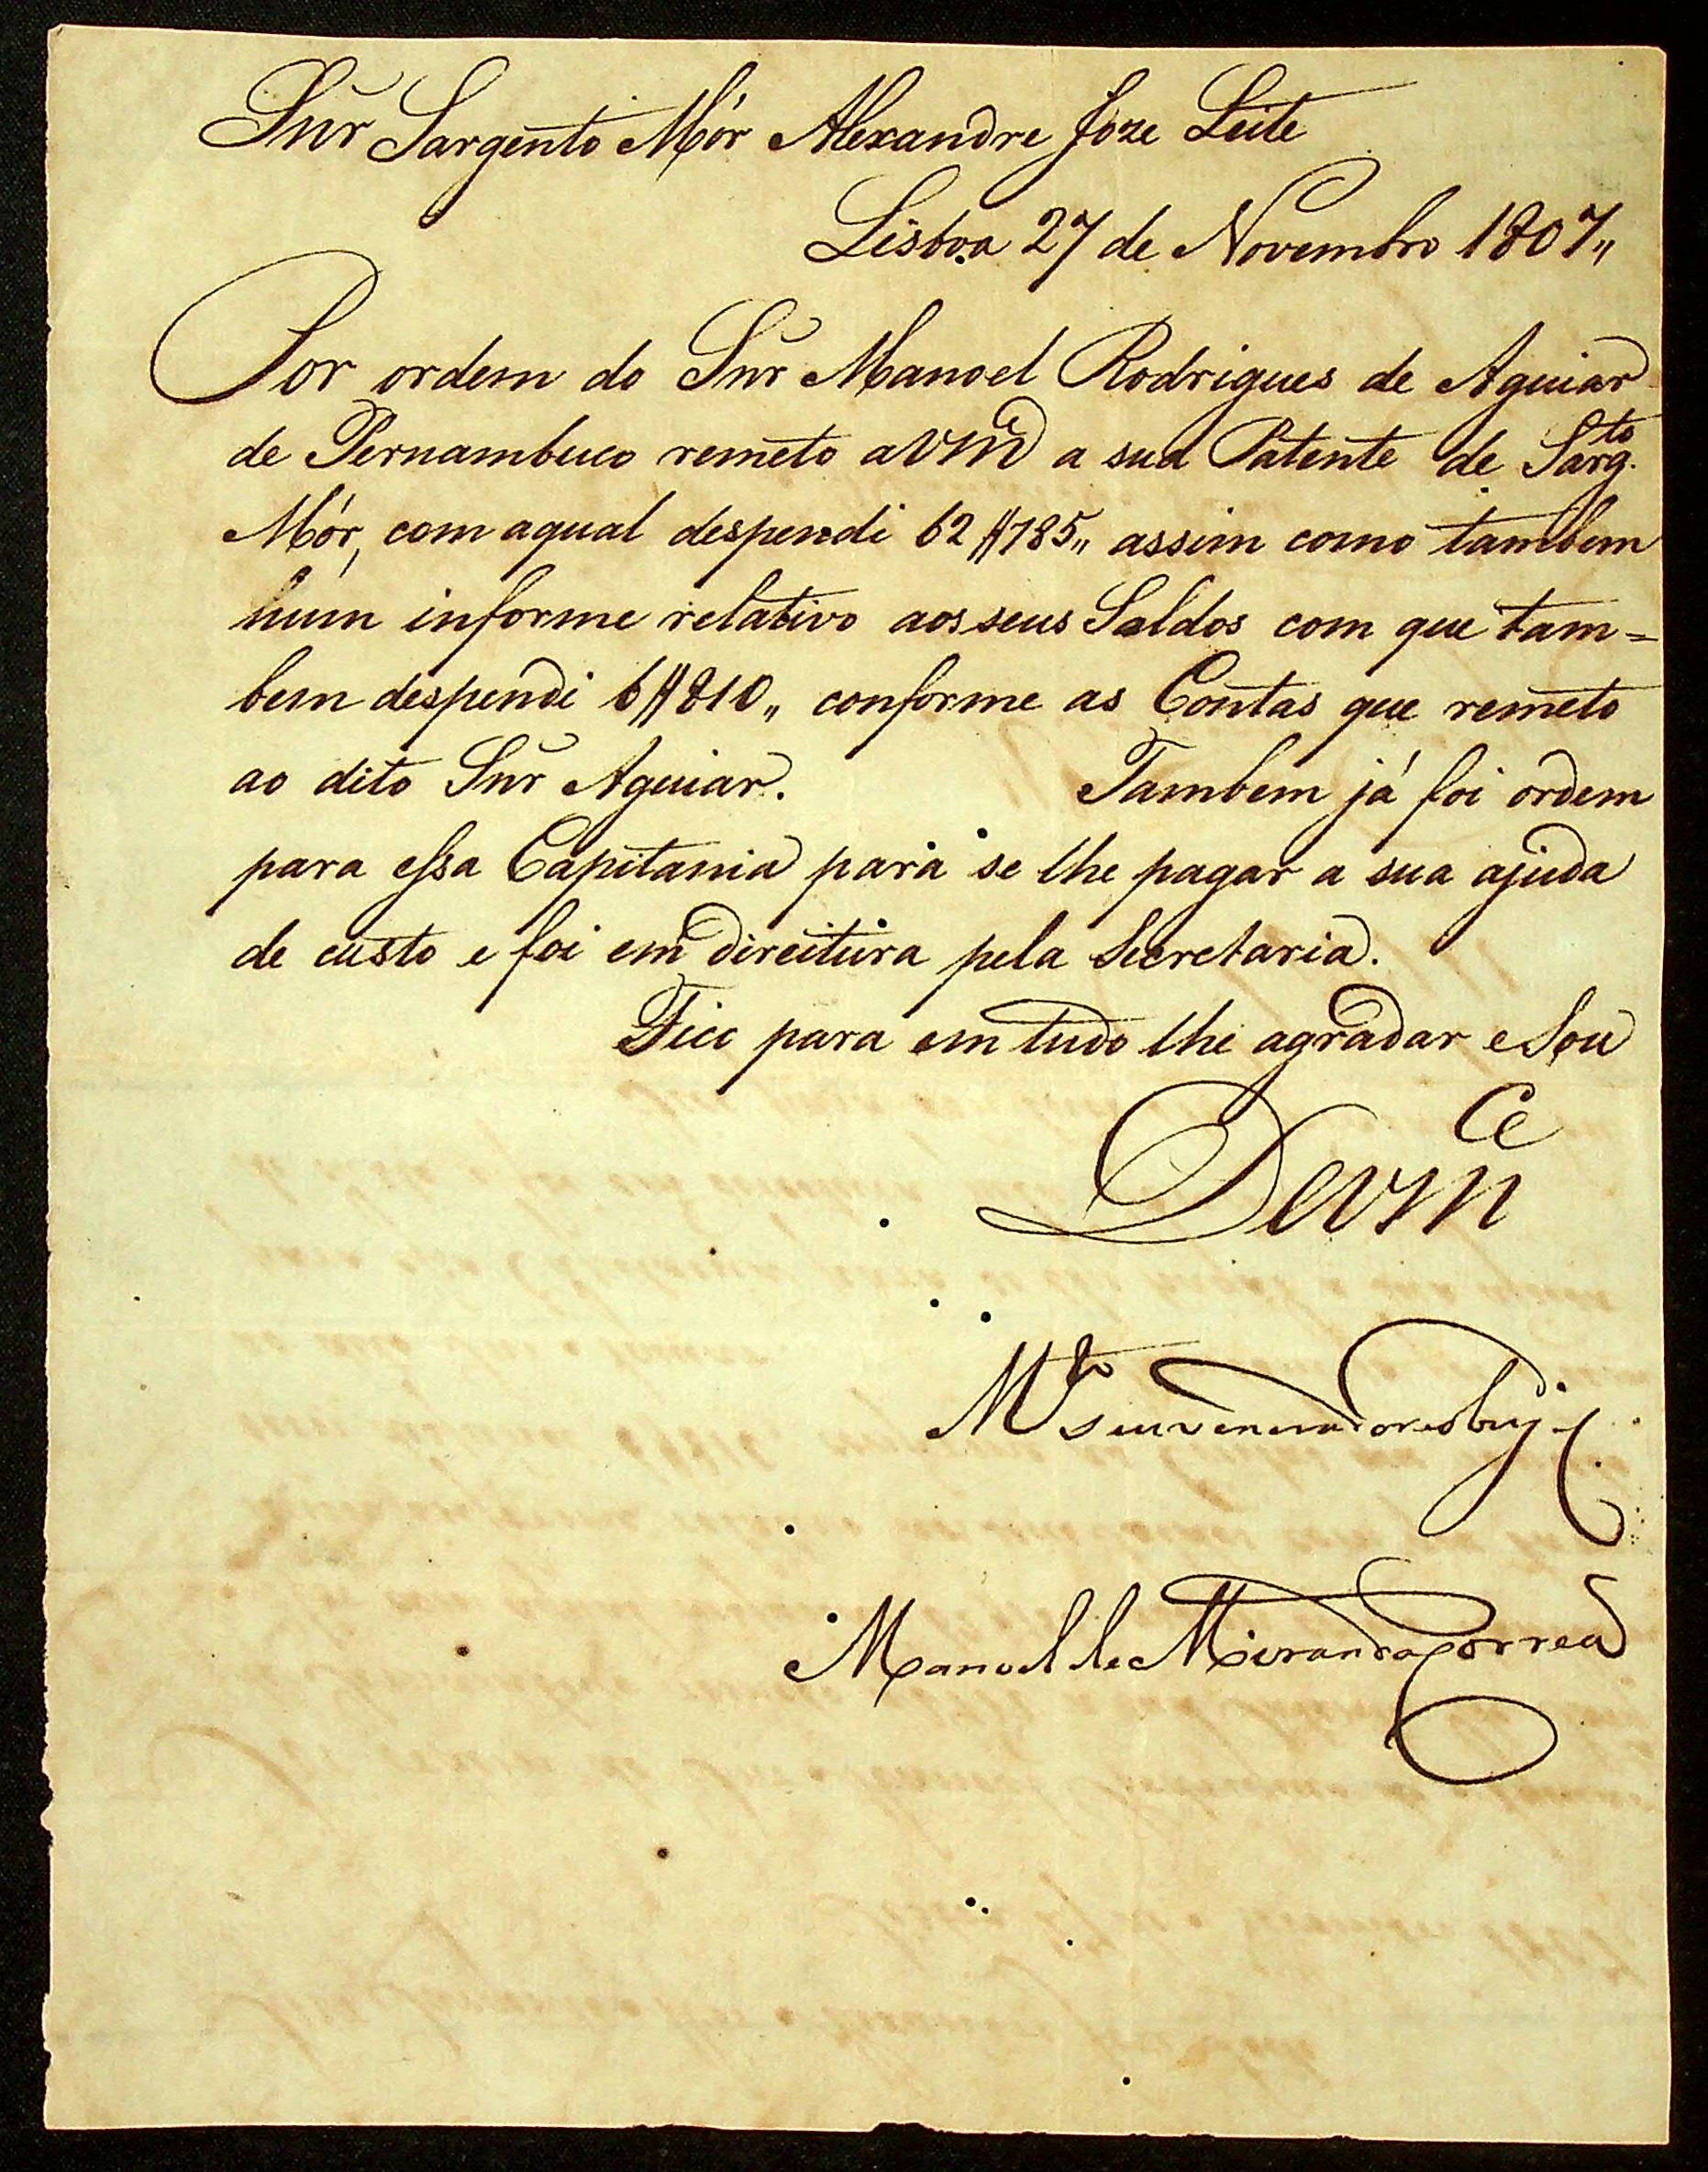 Snr̃ Sargento Mór Alexandre Joze Leite
Lisboa 27 de Novembro 1807,,
Por ordem do Snr̃ Manoel Rodrigues de Aguiar
de Pernambuco remeto aVMce a sua Patente de Sargto.
Mór, com aqual despendi 62$785,, assim como tambem
hum informe relativo aosseus Soldos com que tam=
bem despendi 6$810,, conforme as Contas que remeto
ao dito Snr̃ Aguiar. Tambem já foi ordem
para essa Capitania para se lhe pagar a sua ajuda
de custo e foi em direitura pela Secretaria.
Fico para em tudo lhe agradar e Sou
DeVMce
Mto Seu venerador eobrigo
Manoel de Miranda Correa